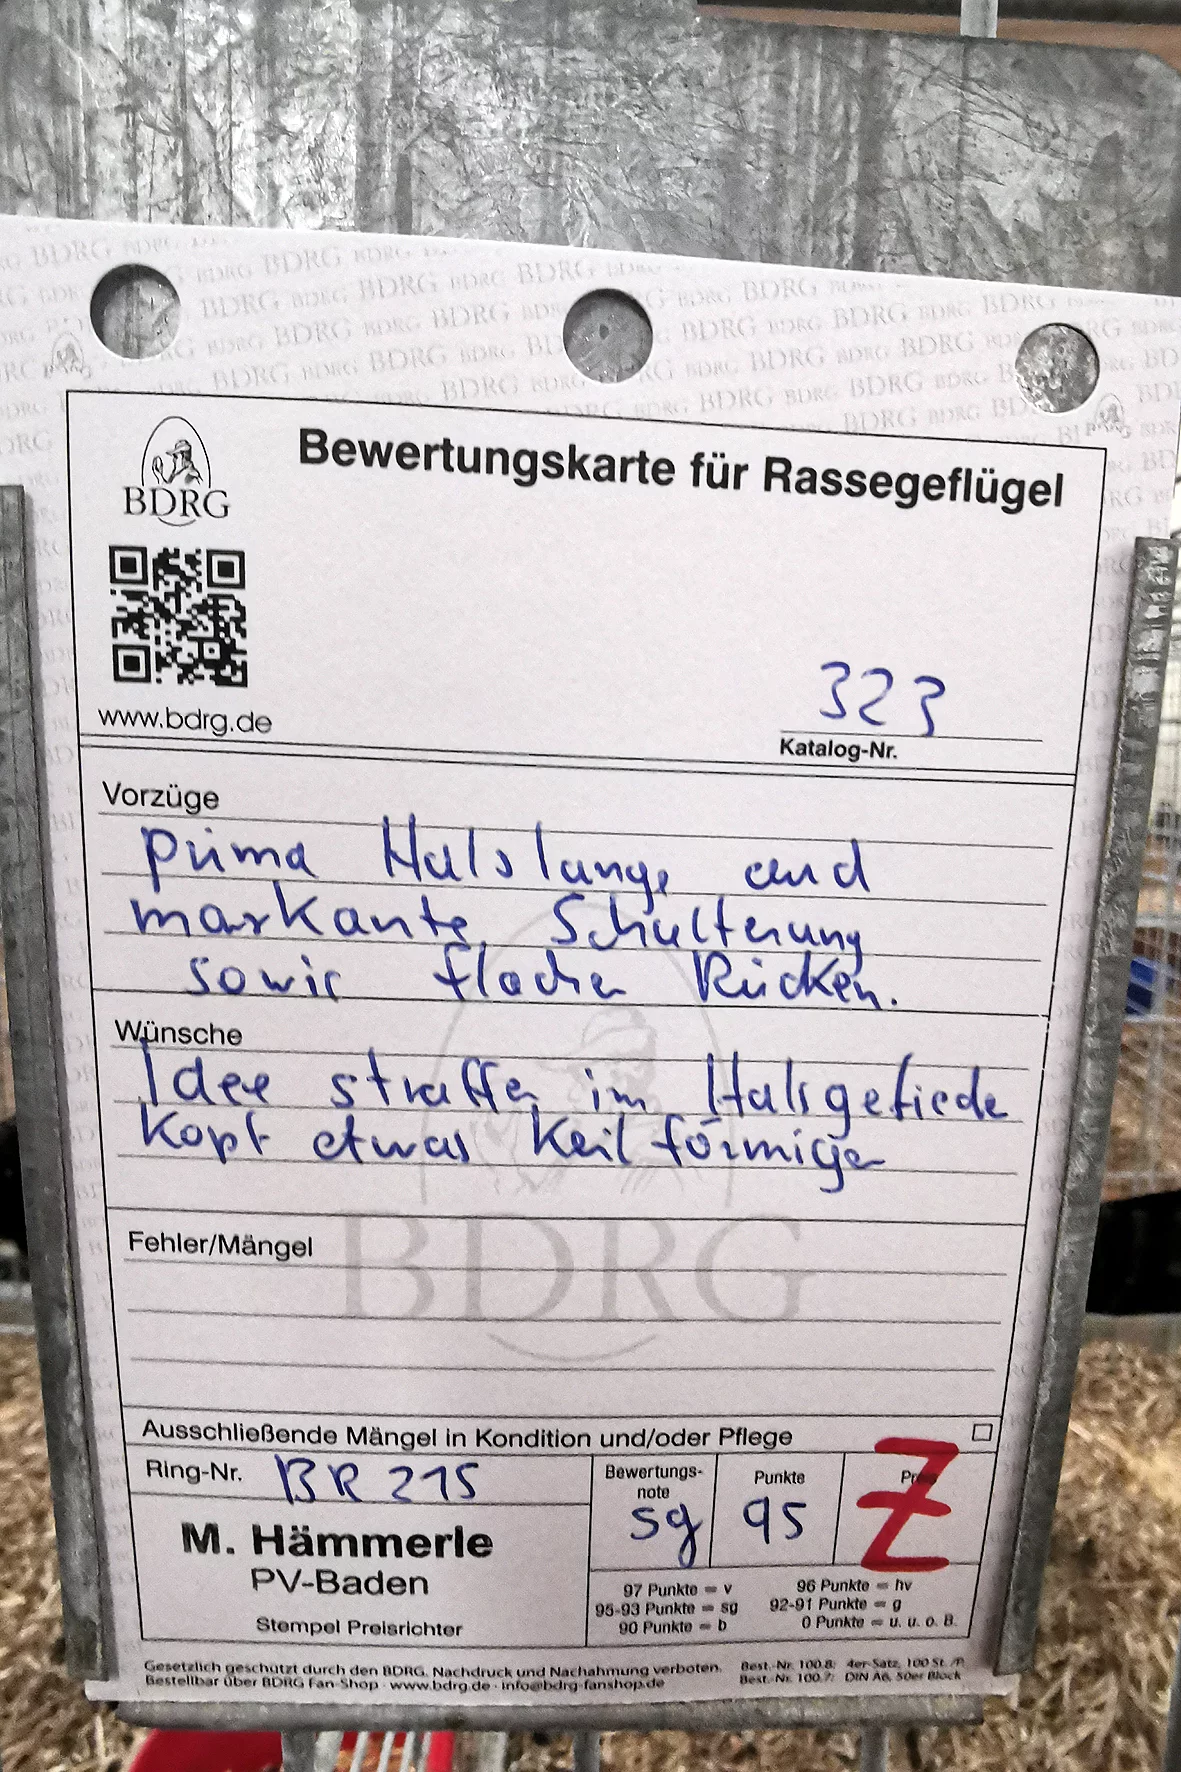 BDRG
Bewertungskarte für Rassegeflügel
www.bdrg.de
323
Katalog-Nr.
Vorzüge
prima Halslänge und
markante Schulterung
sowie flacher Rücken.
Wünsche
Idee straffer im Halsgefieder
Kopf etwas keilförmiger
BDRG
Fehler/Mängel
Ausschließende Mängel in Kondition und/oder Pflege
Ring-Nr. BR 215
Bewertungs-
note
sg
Punkte
95
Preis
Z
M. Hämmerle
PV-Baden
Stempel Preisrichter
97 Punkte = v 96 Punkte = hv
95-93 Punkte = sg 92-91 Punkte = g
90 Punkte = b 0 Punkte = u. u. o. B.
Gesetzlich geschützt durch den BDRG. Nachdruck und Nachahmung verboten. Best.-Nr. 100.8: 4er-Satz, 100 St. /P.
Bestellbar über BDRG Fan-Shop · www.bdrg.de · info@bdrg-fanshop.de Best.-Nr. 100.7: DIN A6, 50er Block